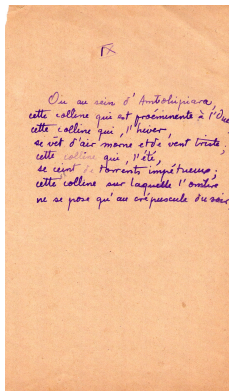 IX
Où au sein d'Ambohipiara,
cette colline qui est proéminente à l'Ouest
cette colline qui, l'hiver,
se vêt d'air morne et de vent triste;
cette colline qui, l'été,
se ceint de torrents impétueux;
cette colline sur laquelle l'ombre
ne se pose qu'au crépuscule du soir,